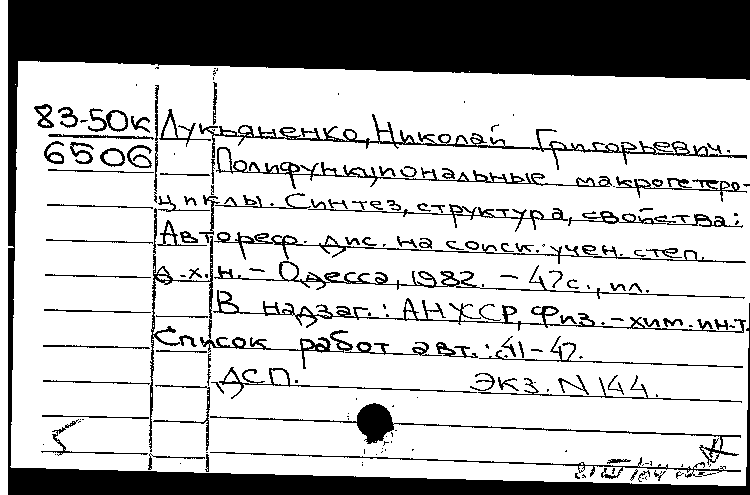 83-50к Лукьяненко, Николай Григорьевич.
6506 Полифункциональные макрогетеро-
циклы. Синтез, структура, свойства:
Автореф. дис. на соиск. учен. степ.
д.х.н. - Одесса, 1982. - 47с., ил.
В надзаг.: АН УССР, Физ.-хим. ин-т.
Список работ авт.: с.41-47.
ДСП. Экз. N 144.